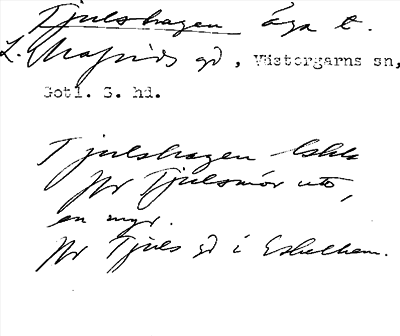 Tjulshagen äga t.
L. Mafrids gd, Västergarns sn,
Gotl. S. hd.
Tjulshagen
Jfr Tjulsmór uto,
en myr.
Jfr Tjuls gd i Eskelhem.